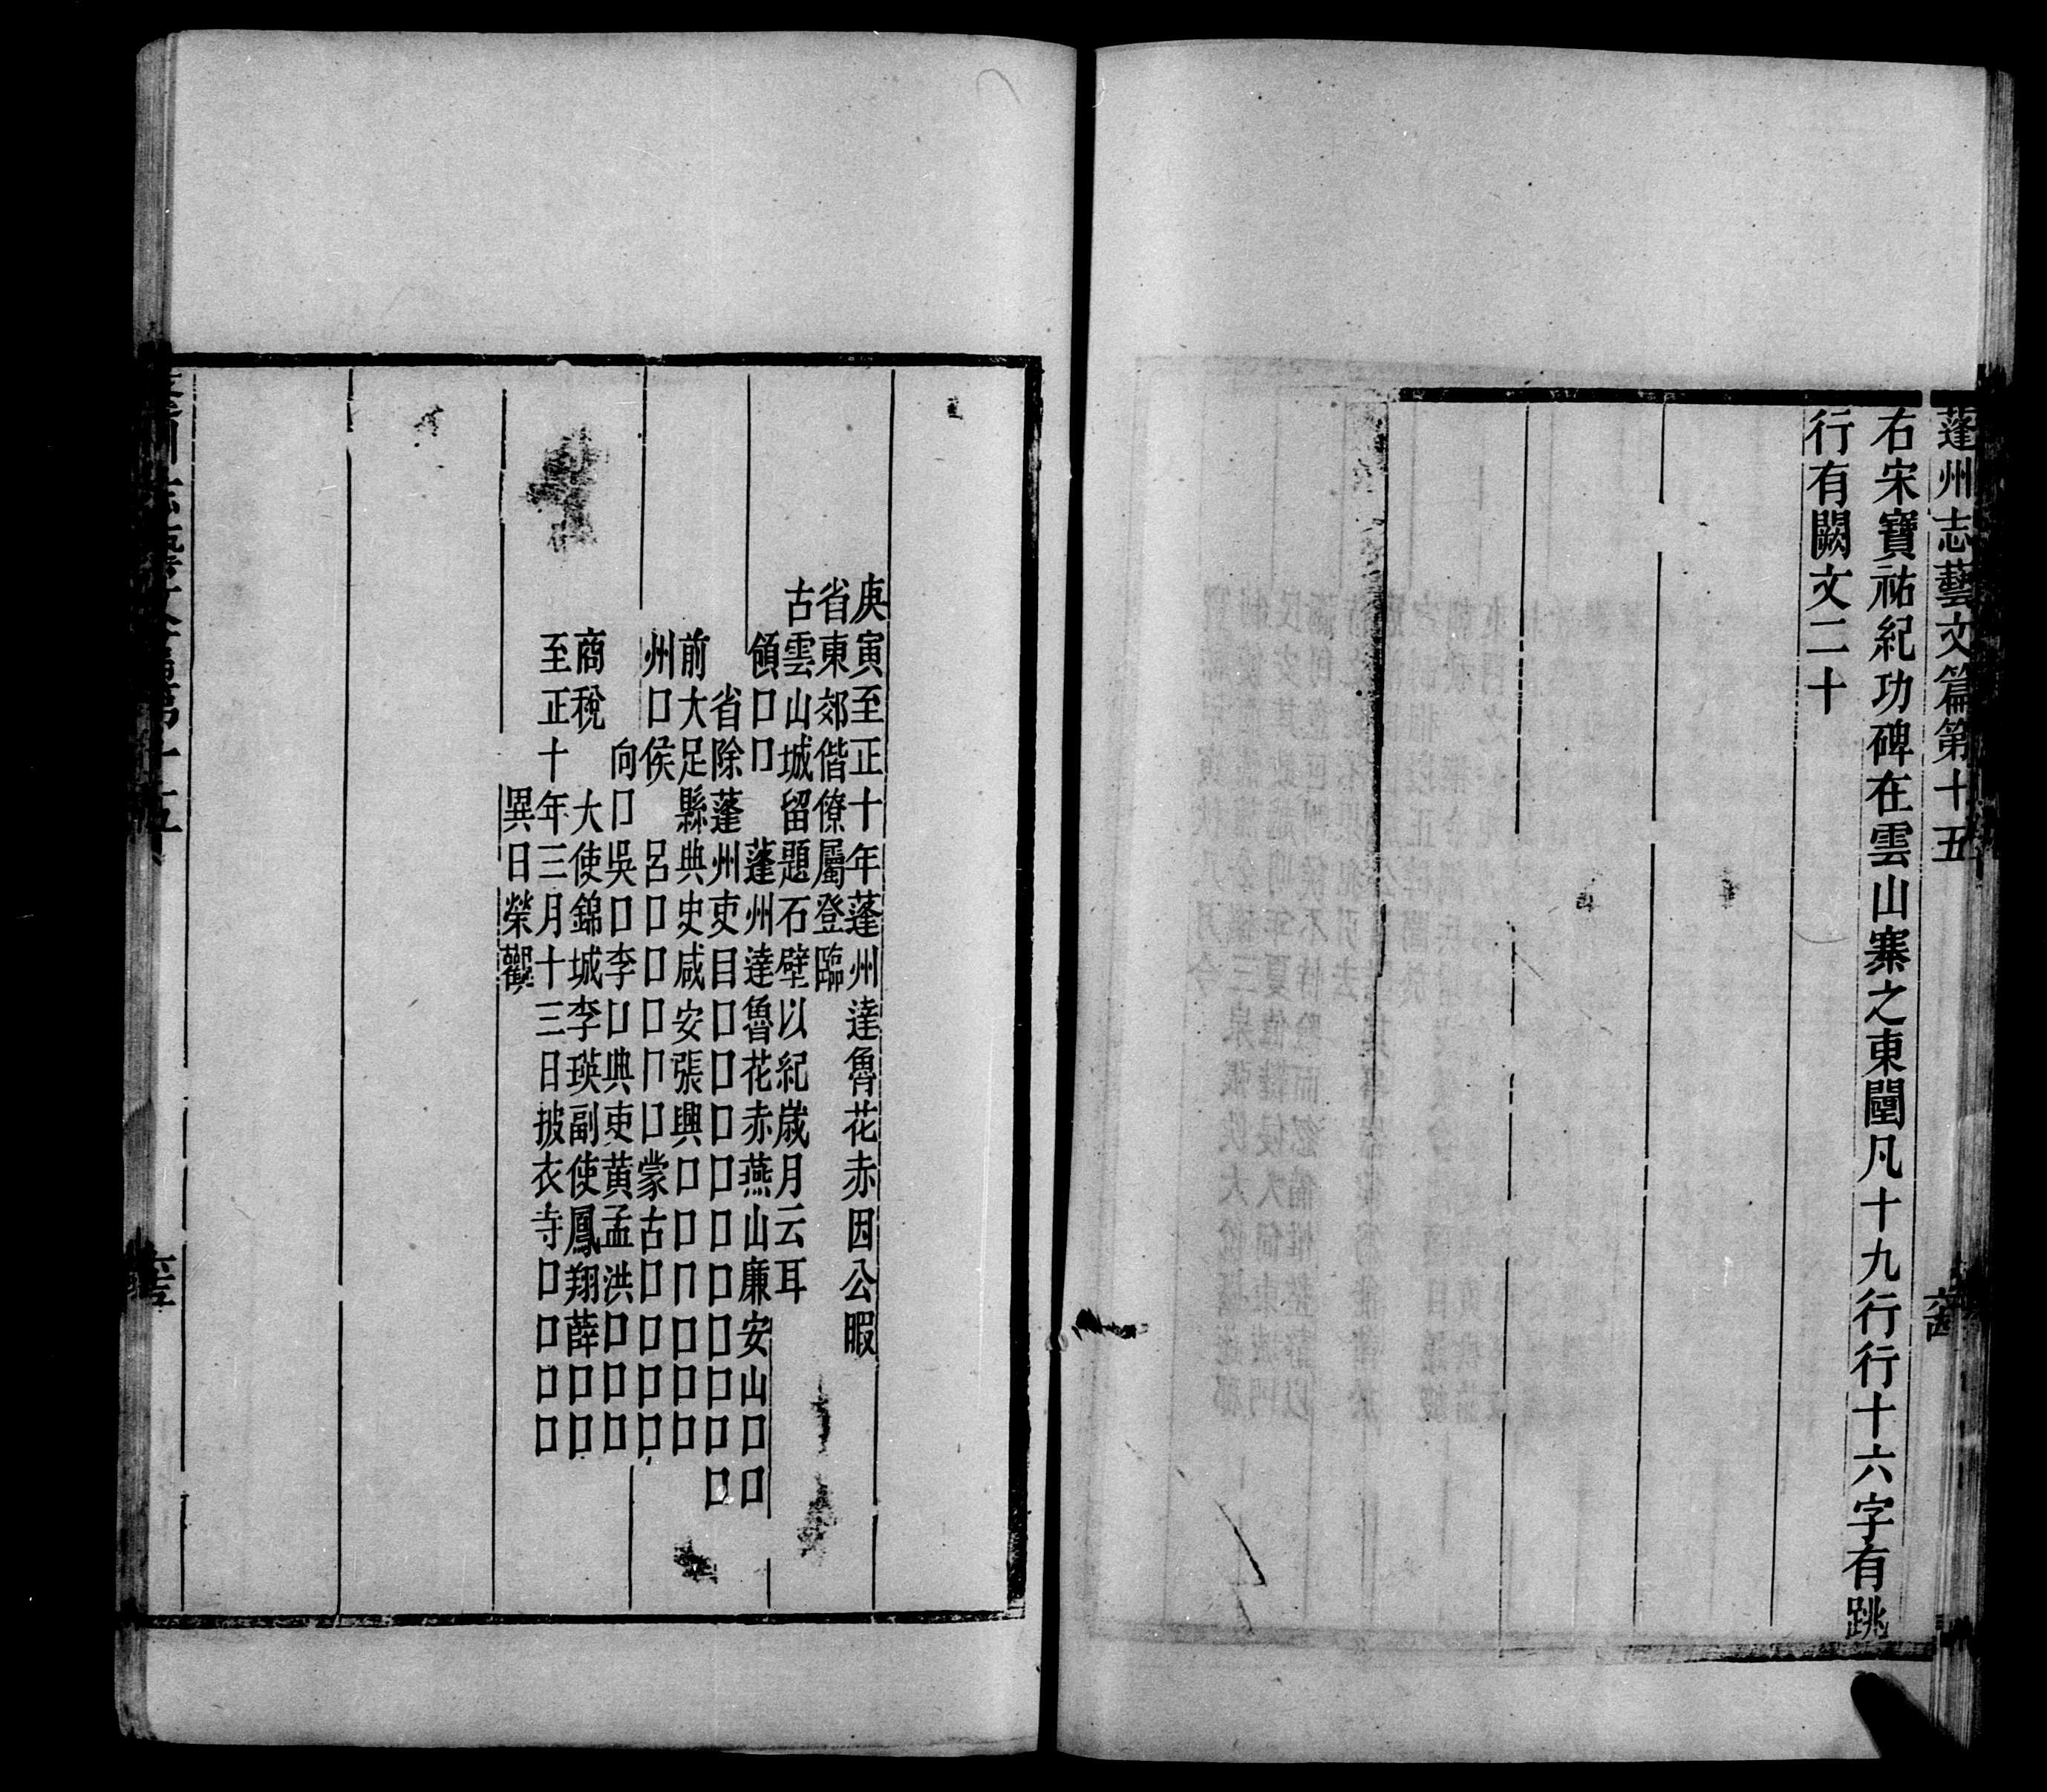 蓬州志藝文篇第十五
右宋寶祐紀功碑在雲山寨之東闉凡十九行行十六字有跳
行有闕文二十
庚寅至正十年蓬州達魯花赤因公暇
省東郊偕僚屬登臨
古雲山城留題石壁以紀歲月云耳
領口口 蓬州達魯花赤燕山廉安山口口
省除蓬州吏目口口口口口口口口口
前大足縣典史咸安張興口口口口口口
州口侯 呂口口口口口蒙古口口口口
向口吳口李口典吏黃孟洪口口口
商稅 大使錦城李瑛副使鳳翔薛口口
至正十年三月十三日披衣寺口口口口
異日榮觀